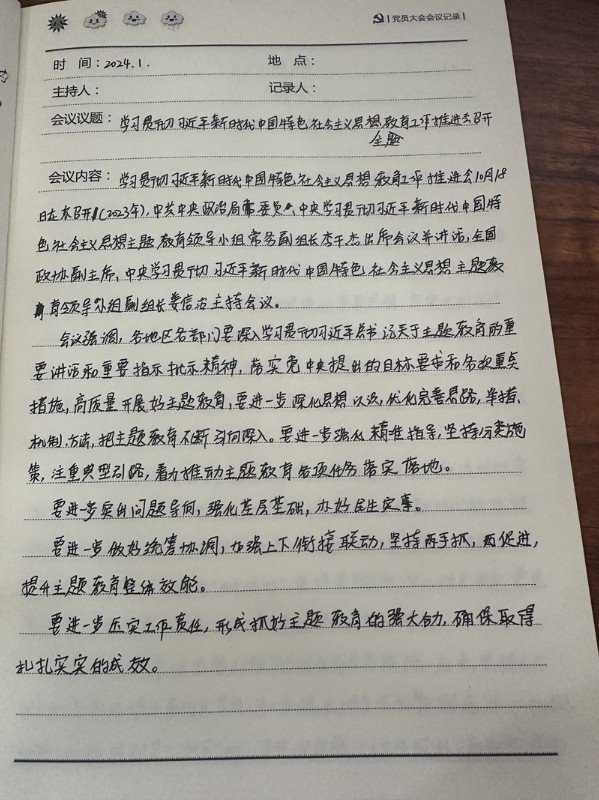 党员大会会议记录
时 间：2024.1.
地 点：
主持人：
记录人：
会议议题：学习贯彻习近平新时代中国特色社会主义思想教育工作推进会召开
主题
会议内容：学习贯彻习近平新时代中国特色社会主义思想教育工作推进会10月18
日在京召开(2023年)，中共中央政治局常委、中央学习贯彻习近平新时代中国特
色社会主义思想主题教育领导小组常务副组长李干杰出席会议并讲话，全国
政协副主席、中央学习贯彻习近平新时代中国特色社会主义思想主题教
育领导小组副组长姜信治主持会议。
会议强调，各地区各部门要深入学习贯彻习近平总书记关于主题教育的重
要讲话和重要指示批示精神，落实党中央提出的目标要求和各项重点
措施，高质量开展好主题教育，要进一步深化思想认识，优化完善思路、举措、
机制、方法，把主题教育不断引向深入。要进一步强化精准指导，坚持分类施
策，注重典型引路，着力推动主题教育各项任务落实落地。
要进一步突出问题导向，强化基层基础，办好民生实事。
要进一步做好统筹协调，加强上下衔接联动，坚持两手抓，两促进，
提升主题教育整体效能。
要进一步压实工作责任，形成抓好主题教育的强大合力，确保取得
扎扎实实的成效。